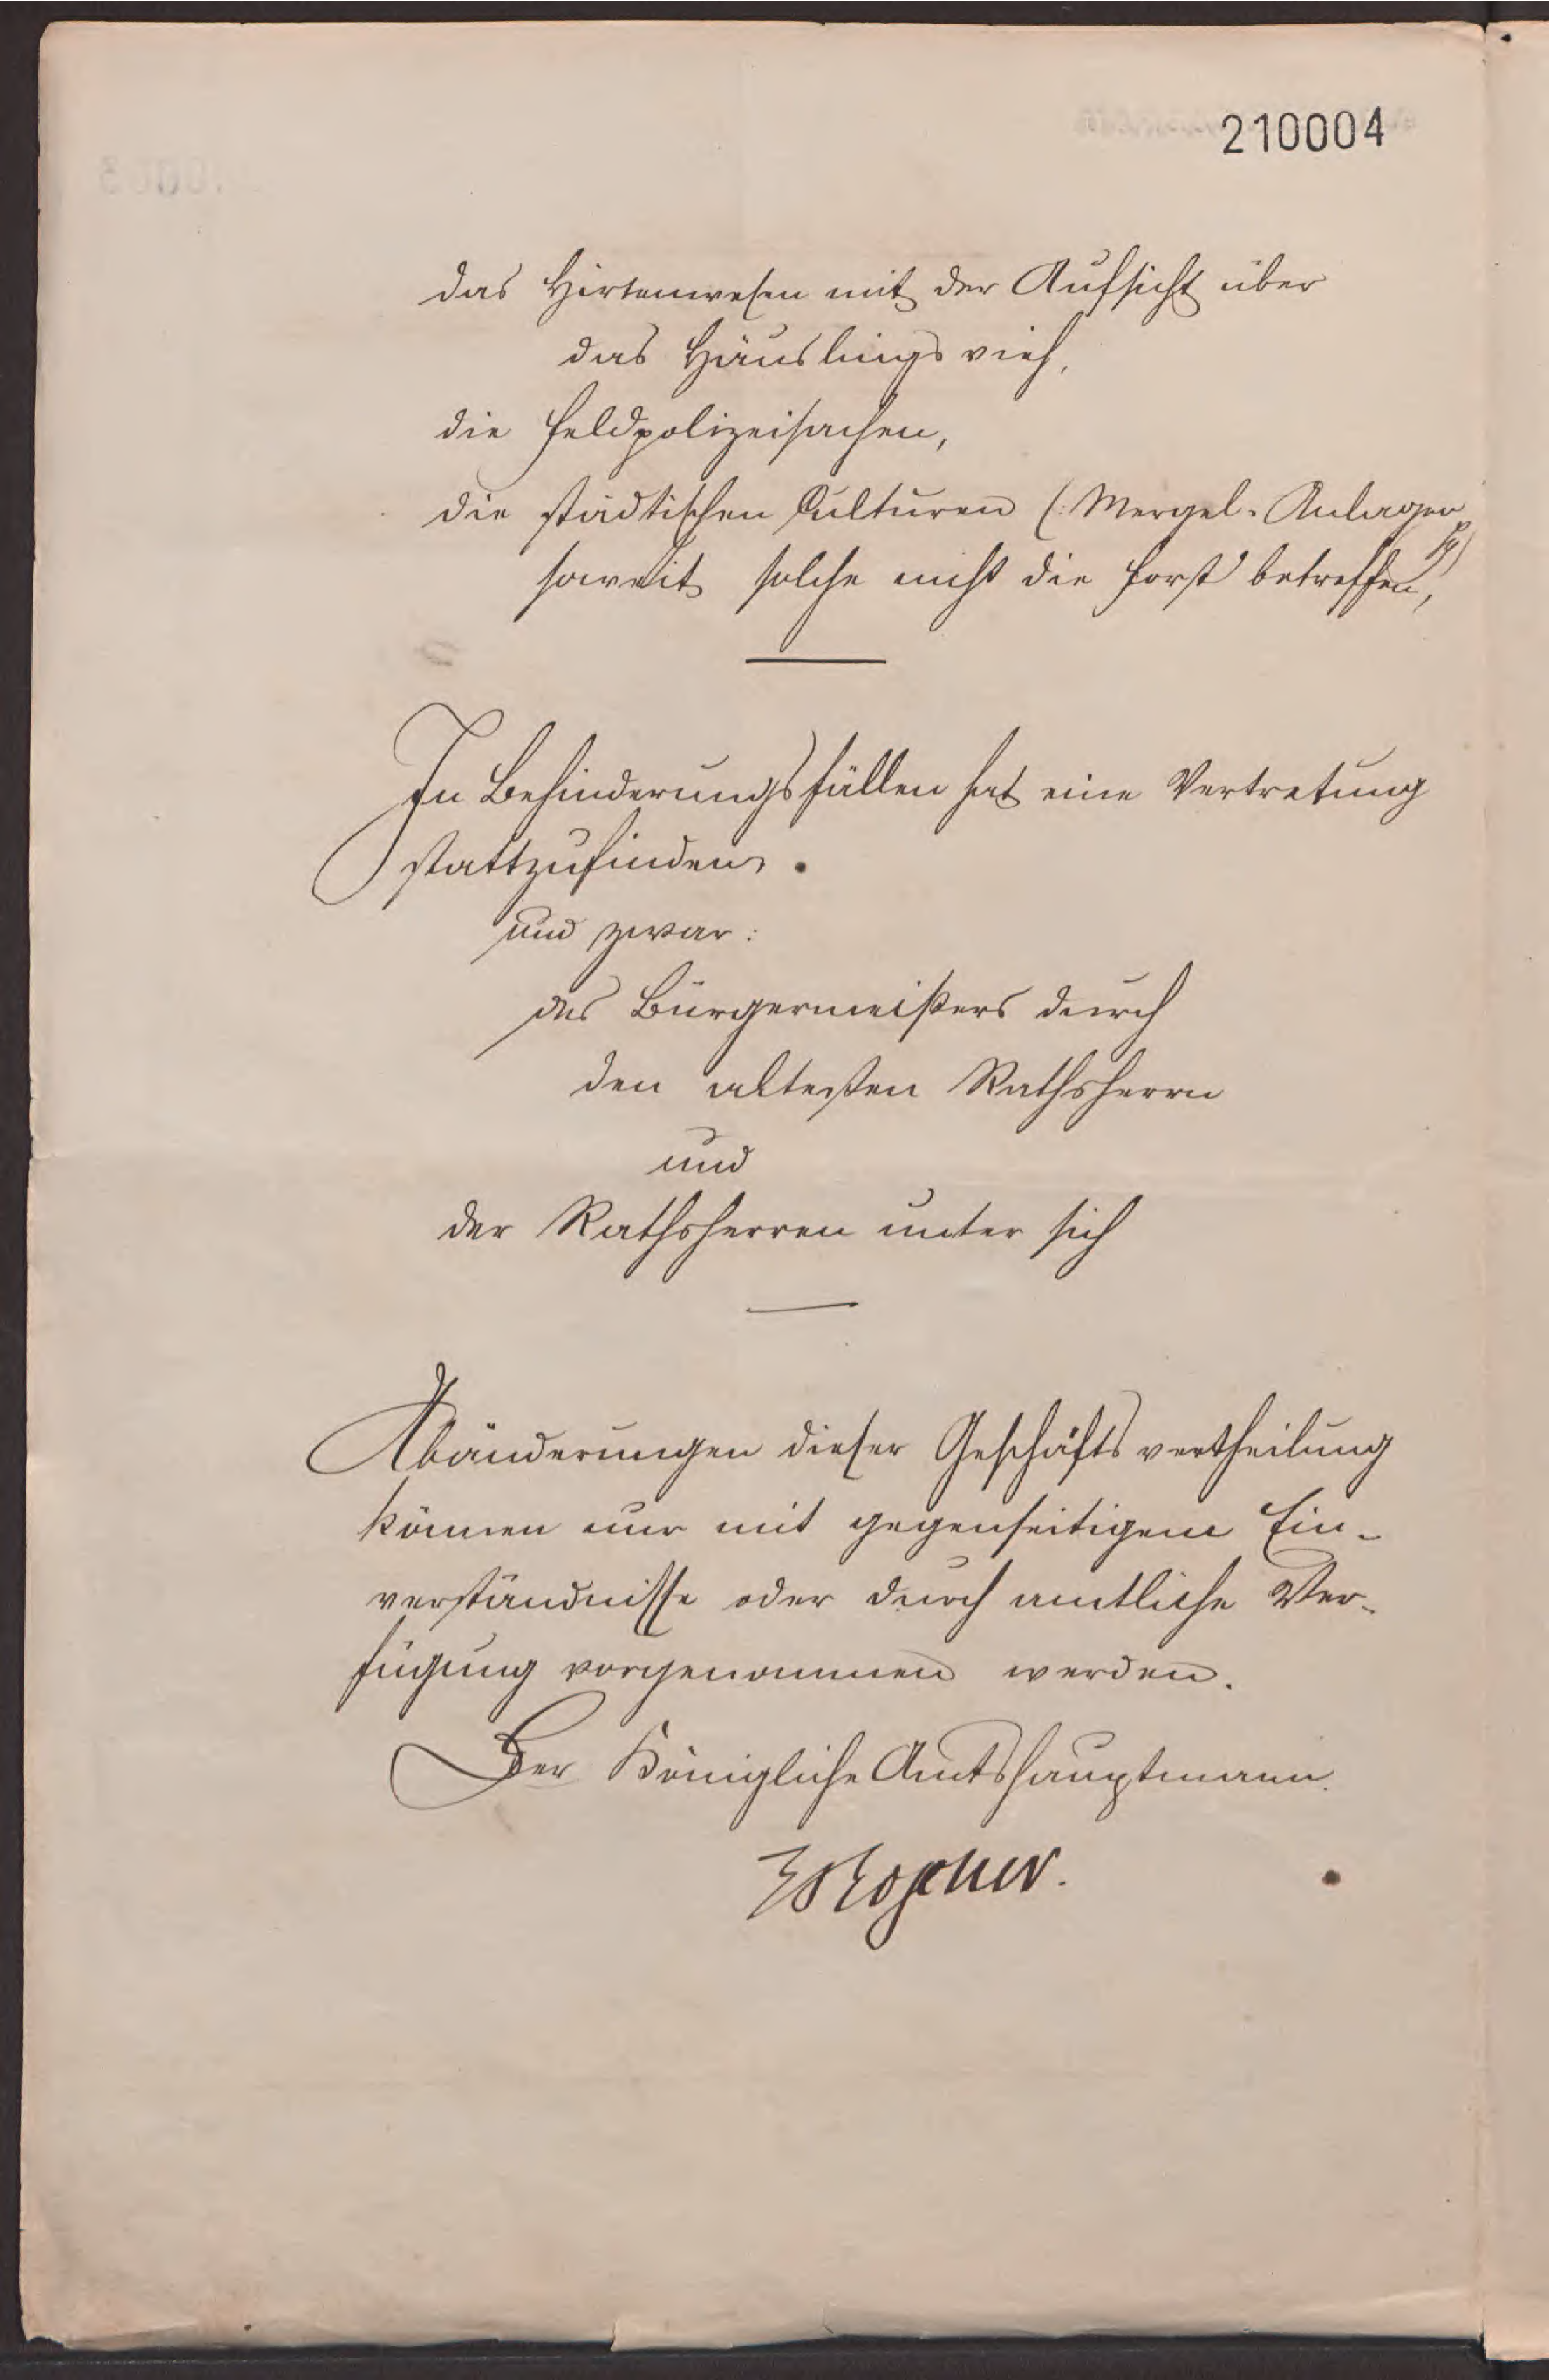 210004
das Hirtenwesen mit der Aufsicht über
das Häuslings vieh,
die Feldpolizeisachen,
die städtischen Culturen (: Mergel-Anlagen
soweit solche nicht die Forst betreffen,
In Behinderungsfällen hat eine Vertretung
stattzufinden.
und zwar:
des Bürgermeisters durch
den altesten Rathsherrn
und
der Rathsherren unter sich
Abänderungen dieser Geschäfts vertheilung
können nur mit gegenseitigem Ein-
verständnisse oder durch amtliche Ver-
fügung vorgenommen werden.
Der Königliche Amtshauptmann.